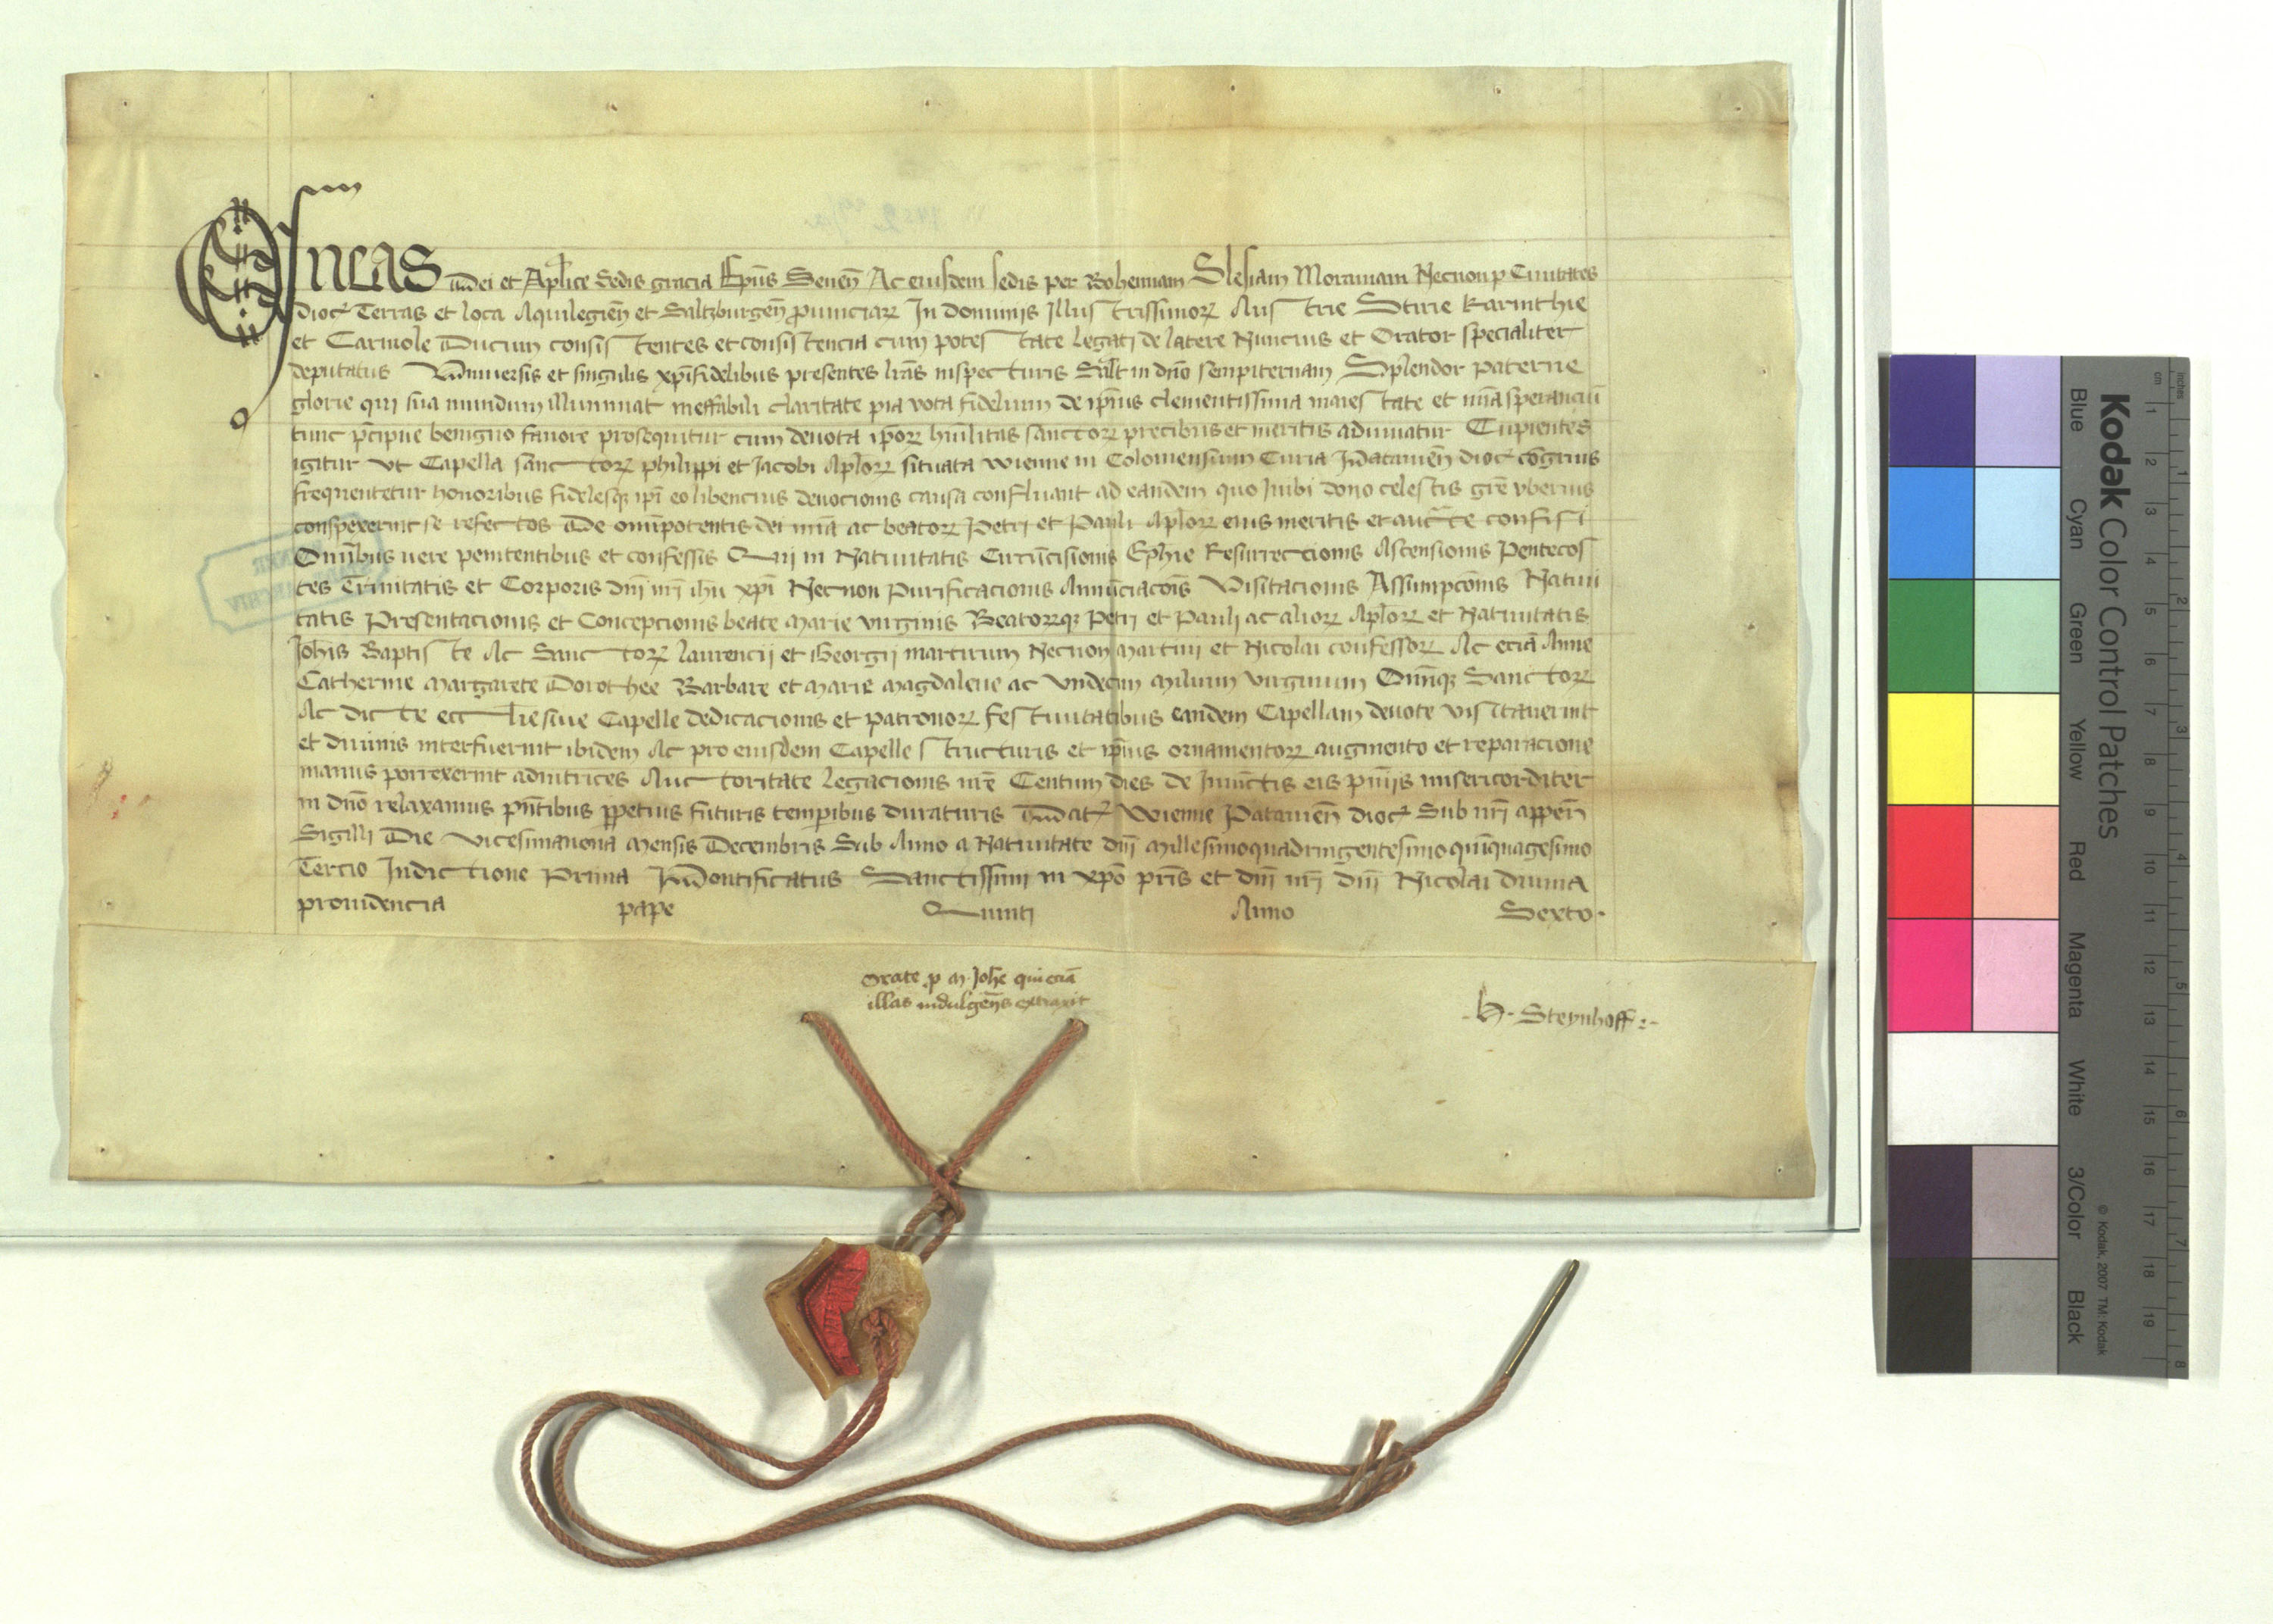 Eneas dei et Aplice Sedis gracia Epūs Senēn Ac eiusdem sedis per Bohemiam Slesiam Morauiam Necnon ꝑ Ciuitates
dioc̄ Terras et loca Aquilegieñ et Saltzburgeñ ꝓuinciaꝝ In dominijs Illustrissimoꝝ Austrie Stirie Karinthie
et Carniole Ducum consistentes et consistencia cum potestate legati de latere Nuncius et Orator specialiter
deputatus Vniuersis et singulis xpīfidelibus presentes lrās inspecturis Salt̄ in dnō sempiternam Splendor paterne
glorie qui sua mundum illuminat ineffabili claritate pia vota fidelium de ip̄ius clementissima maiestate et mīa sperancīū
tunc p̄cipue benigno fauore prosequitur cum deuota ip̄oꝝ hūīlitas sanctoꝝ precibus et meritis adiuuatur Cupientes
igitur vt Capella sanctoꝝ philippi et Jacobi Aplōꝝ situata wienne in Coloniensium Curia Patauieñ dioc̄ cōgruis
frequentetur honoribus fidelesqꝫ ip̄i eo libencius deuocionis causa confluant ad eandem quo Inibi dono celestis grē vberius
conspexerint se refectos De omīpotentis dei mīa ac beatoꝝ Petri et Pauli Aplōꝝ eius meritis et auctē confisi
Omībus uere penitentibus et confessis Qui in Natiuitatis Circūcisionis Ephie Resurrectionis Ascensionis Pentecos
tes Trinitatis et Corporis dnī nrī ihū xpī Necnon Purificacionis Annūciacōis Visitacionis Assumpcōnis Natiui
tatis Presentacionis et Concepcionis beate Marie virginis Beatoꝝqꝫ Petri et Pauli ac alioꝝ Aplōꝝ et Natiuitatis
Johīs Baptiste Ac Sanctoꝝ laurencij et Georgij martirum Necnon Martini et Nicolai confessoꝝ Ac eciā Anne
Catherine Margarete Dorothee Barbare et Marie Magdalene ac Vndecim Milium virginum Omīqꝫ Sanctoꝝ
Ac dicte eccl̄ie siue Capelle dedicacionis et patronoꝝ festiuitatibus eandem Capellam deuote visitauerint
et diuinis interfuerint ibidem Ac pro eiusdem Capelle structuris et ip̄ius ornamentoꝝ augmento et reparacione
manus porrexerint adiutrices Auctoritate legacionis nrē Centum dies de Iniūctis eis pnīijs misericorditer
in dnō relaxamus pn̄tibus ꝑpetuis futuris temꝑibus duraturis Dat̄ Wienne Patauieñ dioc̄ Sub nrī appeñ
Sigilli Die Vicesimanona Mensis Decembris Sub Anno a Natiuitate dnī Millesimoquadringentesimoquīquagesimo
Tercio Indictione Prima Pontificatus Sanctissimi in xpō pr̄is et dnī nrī dnī Nicolai diuina
prouidencia pape Quinti Anno Sexto.
Orate ꝓ M. Johē qui eciā
illas indulgēn̄s extraxit
. H. Steynhoff :-
Kodak Color Control Patches
Blue Cyan Green Yellow Red Magenta White 3/Color Black
© Kodak, 2007 TM: Kodak
inches 1 2 3 4 5 6 7 8
cm 1 2 3 4 5 6 7 8 9 10 11 12 13 14 15 16 17 18 19